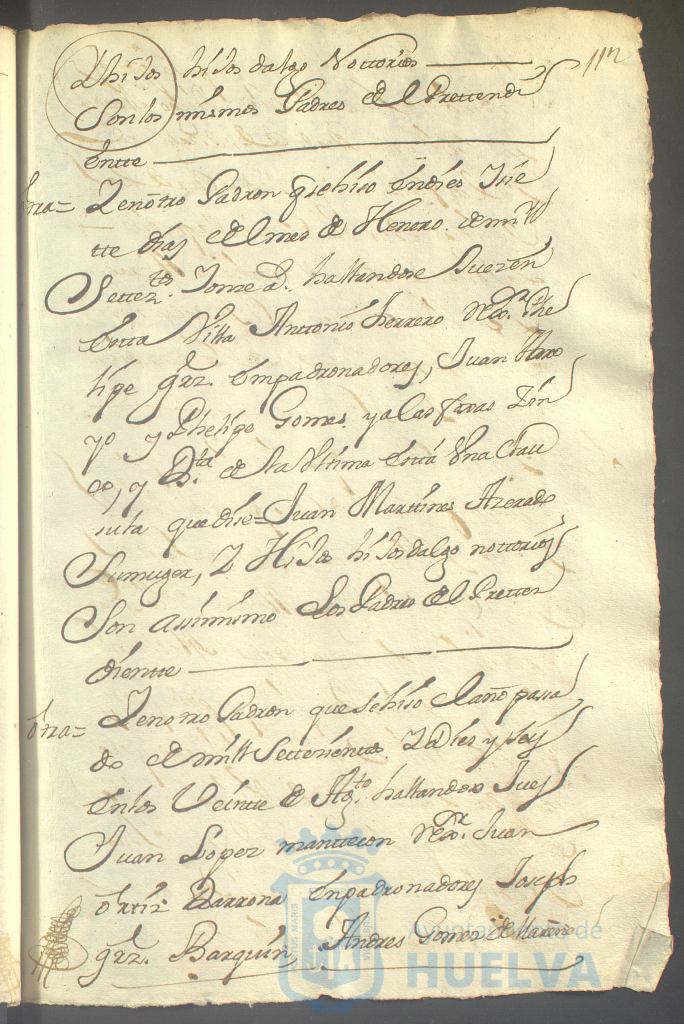 112
Y hijos hijosdalgo Nottorios
Son los mismos Padres del Prettendi
entte
otra= Y en otro Padron q se hiso en dies y sie
tte dias del mes de Henero de mill
Settez.tos y onze a.s hallandose Juez en
esta Villa Anttonio herrero Rex.or Phe
lipe grz. empadronadores, Juan
yo y Phelipe Gomes, y a las foxas Zin
co, y b.ta de la Ultima está Una Clau
sula que dise= Juan Martines Azeredo
Su muger, Y Hijos hijosdalgo nottorios
Son assimismo Los Padres del Pretten
diente
otra= Y en otro Padron que se hiso el año passa
do de mill Settesientos Y dies y seis
en los Veintte de Ag.to hallandose Juez
Juan Lopez mantecon Rex.or Juan
ortiz Barrona Empadronadores Joseph
grz. Barquin, Andres Gomes de
Ayuntamiento de
HUELVA